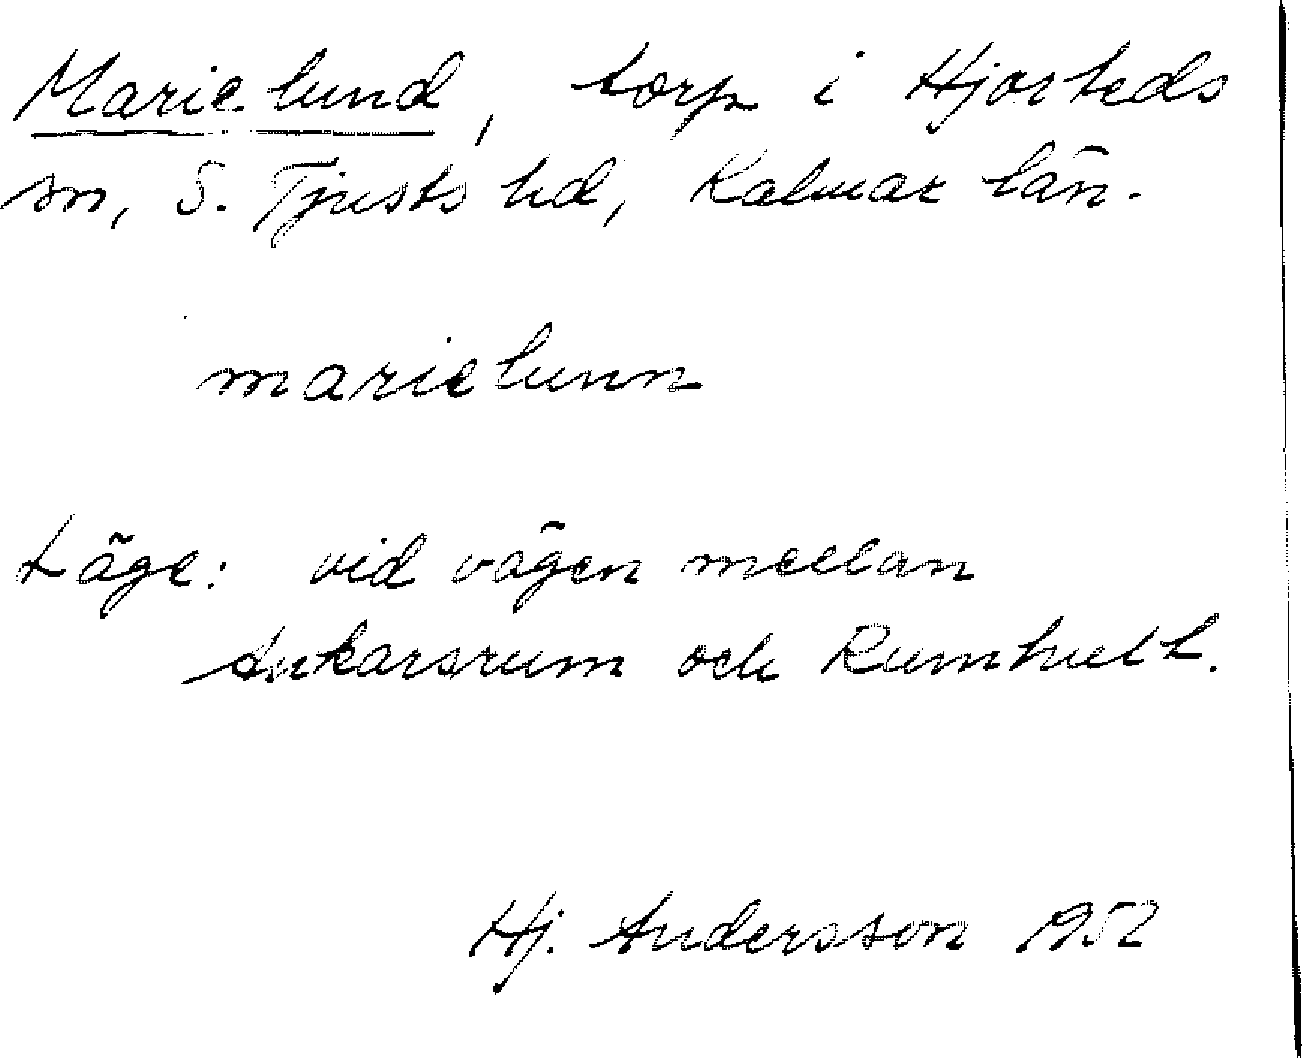 Marielund, torp i Hjorteds
sn, S. Tjusts hd, Kalmar län.
marielunn
Läge: vid vägen mellan
Ankarsrum och Rumhult.
Hj. Andersson 1952